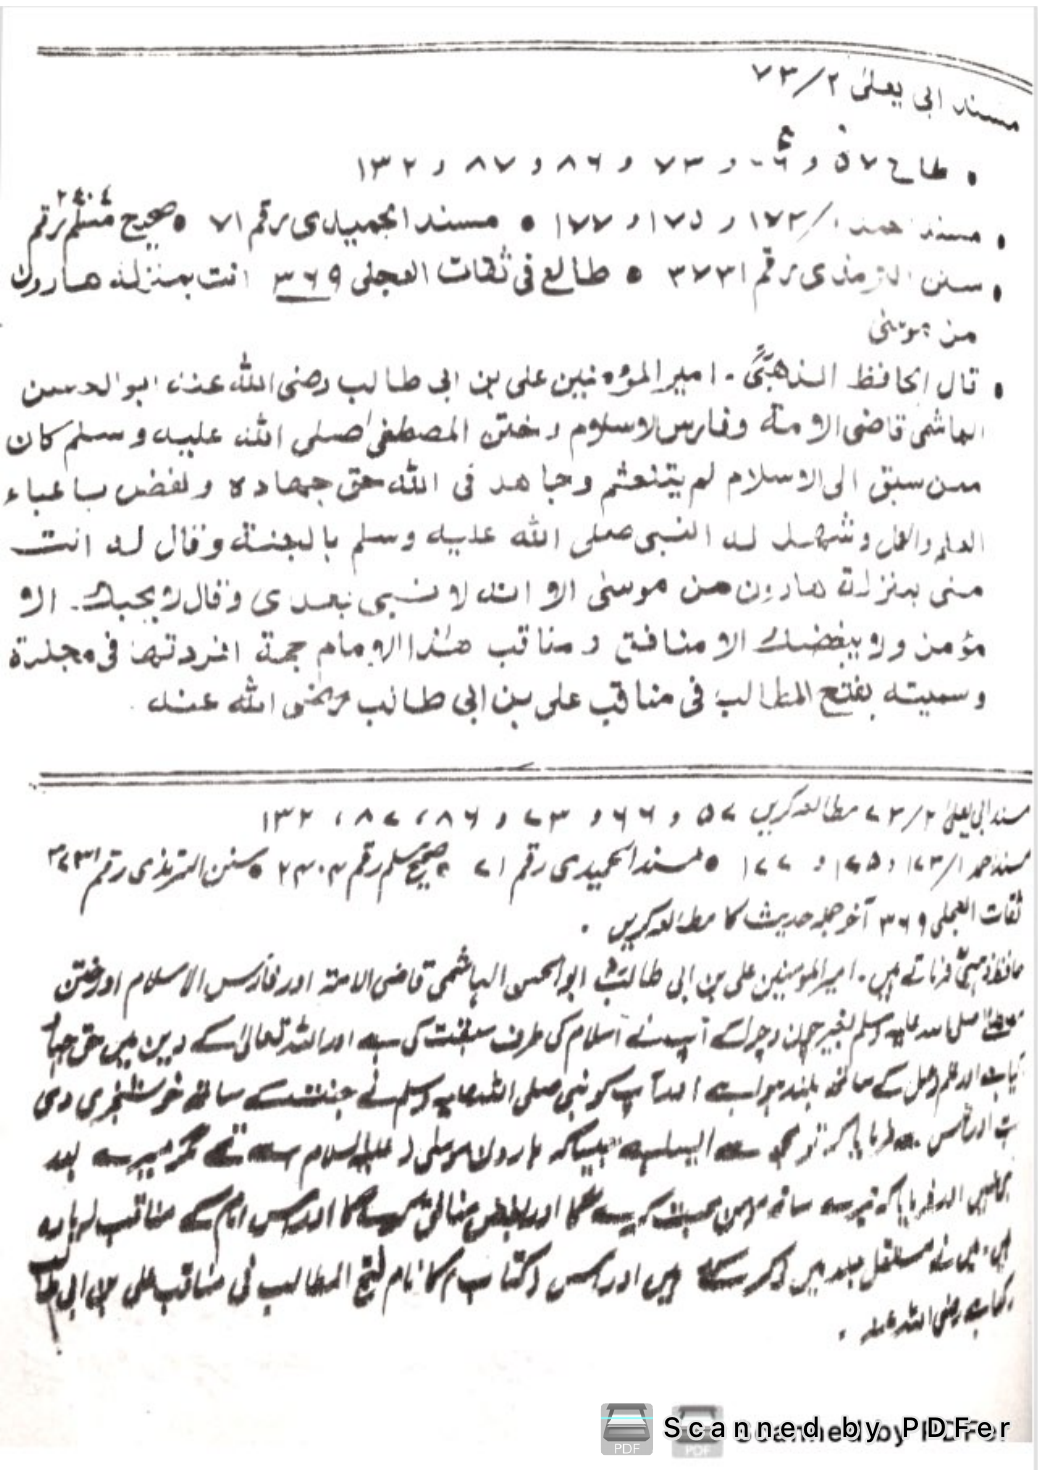 مسند ابی یعلیٰ ۷۳/۲
• طاح ۵۷ و ۶۰ و ۷۳ و ۸۶ و ۸۷ و ۱۳۲
• مسند احمد ۱/۱۷۳ و ۱۷۵ و ۱۷۷ • مسند الحمیدی رقم ۷۱ • صحیح مسلم رقم ۲۴۰۴
• سنن الترمذی رقم ۳۷۳۱ • طالع فی ثقات العجلی ۳۶۹ انت بمنزلة هارون
من موسیٰ
• قال الحافظ الذهبیؒ - امیر المؤمنین علی بن ابی طالب رضی الله عنه ابو الحسن
الهاشمی قاضی الامة وفارس الاسلام و ختن المصطفیٰ صلی الله علیه وسلم کان
ممن سبق الی الاسلام لم یتلعثم وجاهد فی الله حق جهاده ونهض باعباء
العلم والعمل وشهد له النبی صلی الله علیه وسلم بالجنة وقال له انت
منی بمنزلة هارون من موسیٰ الا انه لا نبی بعدی وقال لا یحبک الا
مؤمن ولا یبغضک الا منافق و مناقب هٰذا الامام جمة افردتها فی مجلدة
وسمیته بفتح المطالب فی مناقب علی بن ابی طالب رضی الله عنه.
مسند ابی یعلیٰ ۷۳/۲ مطالعہ کریں ۵۷ و ۶۶ و ۷۳ و ۸۶، ۸۷، ۱۳۲
مسند احمد ۱/۱۷۳ و ۱۷۵ و ۱۷۷ • مسند الحمیدی رقم ۷۱ • صحیح مسلم رقم ۲۴۰۴ • سنن الترمذی رقم ۳۷۳۱
ثقات العجلی ۳۶۹ آخر جملہ حدیث کا مطالعہ کریں۔
حافظ ذہبیؒ فرماتے ہیں۔ امیر المومنین علی بن ابی طالبؓ ابو الحسن الہاشمی قاضی الامۃ اور فارس الاسلام اور ختن
مصطفےٰ صلی اللہ علیہ وسلم بغیر چون و چرا کے آپ نے اسلام کی طرف سبقت کی ہے اور اللہ تعالیٰ کے دین میں حق جہاد
کیا ہے اور علم و عمل کے ساتھ بلند ہوا ہے اور آپ کو نبی صلی اللہ علیہ وسلم نے جنت کے ساتھ خوشخبری دی
فرمایا کہ تو مجھ سے ایسا ہے جیسا کہ ہارون موسیٰ علیہ السلام سے تھے مگر میرے بعد
نبی نہیں اور فرمایا کہ تیرے ساتھ مومن محبت کرے گا اور بغض منافق کرے گا اور اس امام کے مناقب زیادہ
ہیں، میں نے مستقل جلد میں ذکر کئے ہیں اور اس کتاب کا نام فتح المطالب فی مناقب علی بن ابی طالب
رکھا ہے رضی اللہ عنہ۔
Scanned by PDFer
Scanned by PDFer